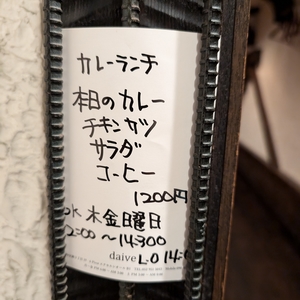 カレーランチ
本日のカレー
チキンカツ
サラダ
コーヒー
1200円
水木金曜日
12:00〜14:300
daive L.O 14:0